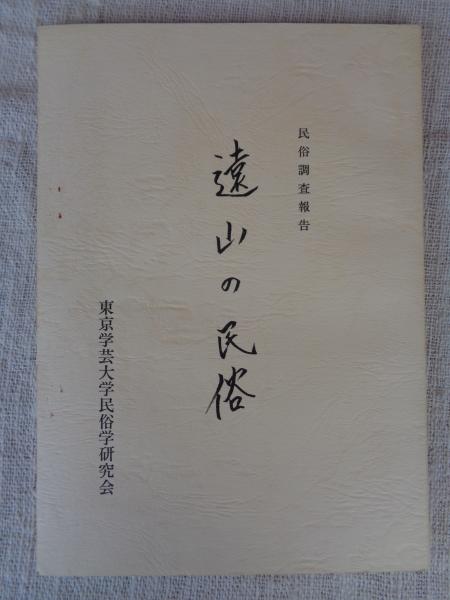 民俗調査報告
遠山の民俗
東京学芸大学民俗学研究会